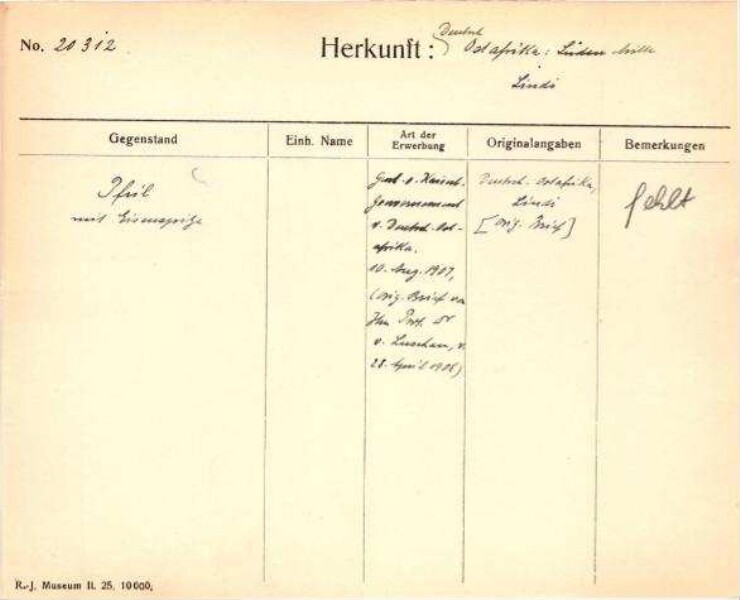 No. 20312
Herkunft: Deutsch
Ostafrika: Süden Mitte
Lindi
Gegenstand
Einh. Name
Art der
Erwerbung
Originalangaben
Bemerkungen
Pfeil
mit Eisenspitze
v. Kaiserl.
Gouvernement
v. Deutsch. Ost-
afrika.
10. Aug. 1907,
(orig. Brief von
Hrn Prof. Dr
v. Luschan, v.
28. April 1908)
Deutsch. Ostafrika,
Lindi
[orig. Brief]
fehlt
R.-J. Museum II. 25. 10000.